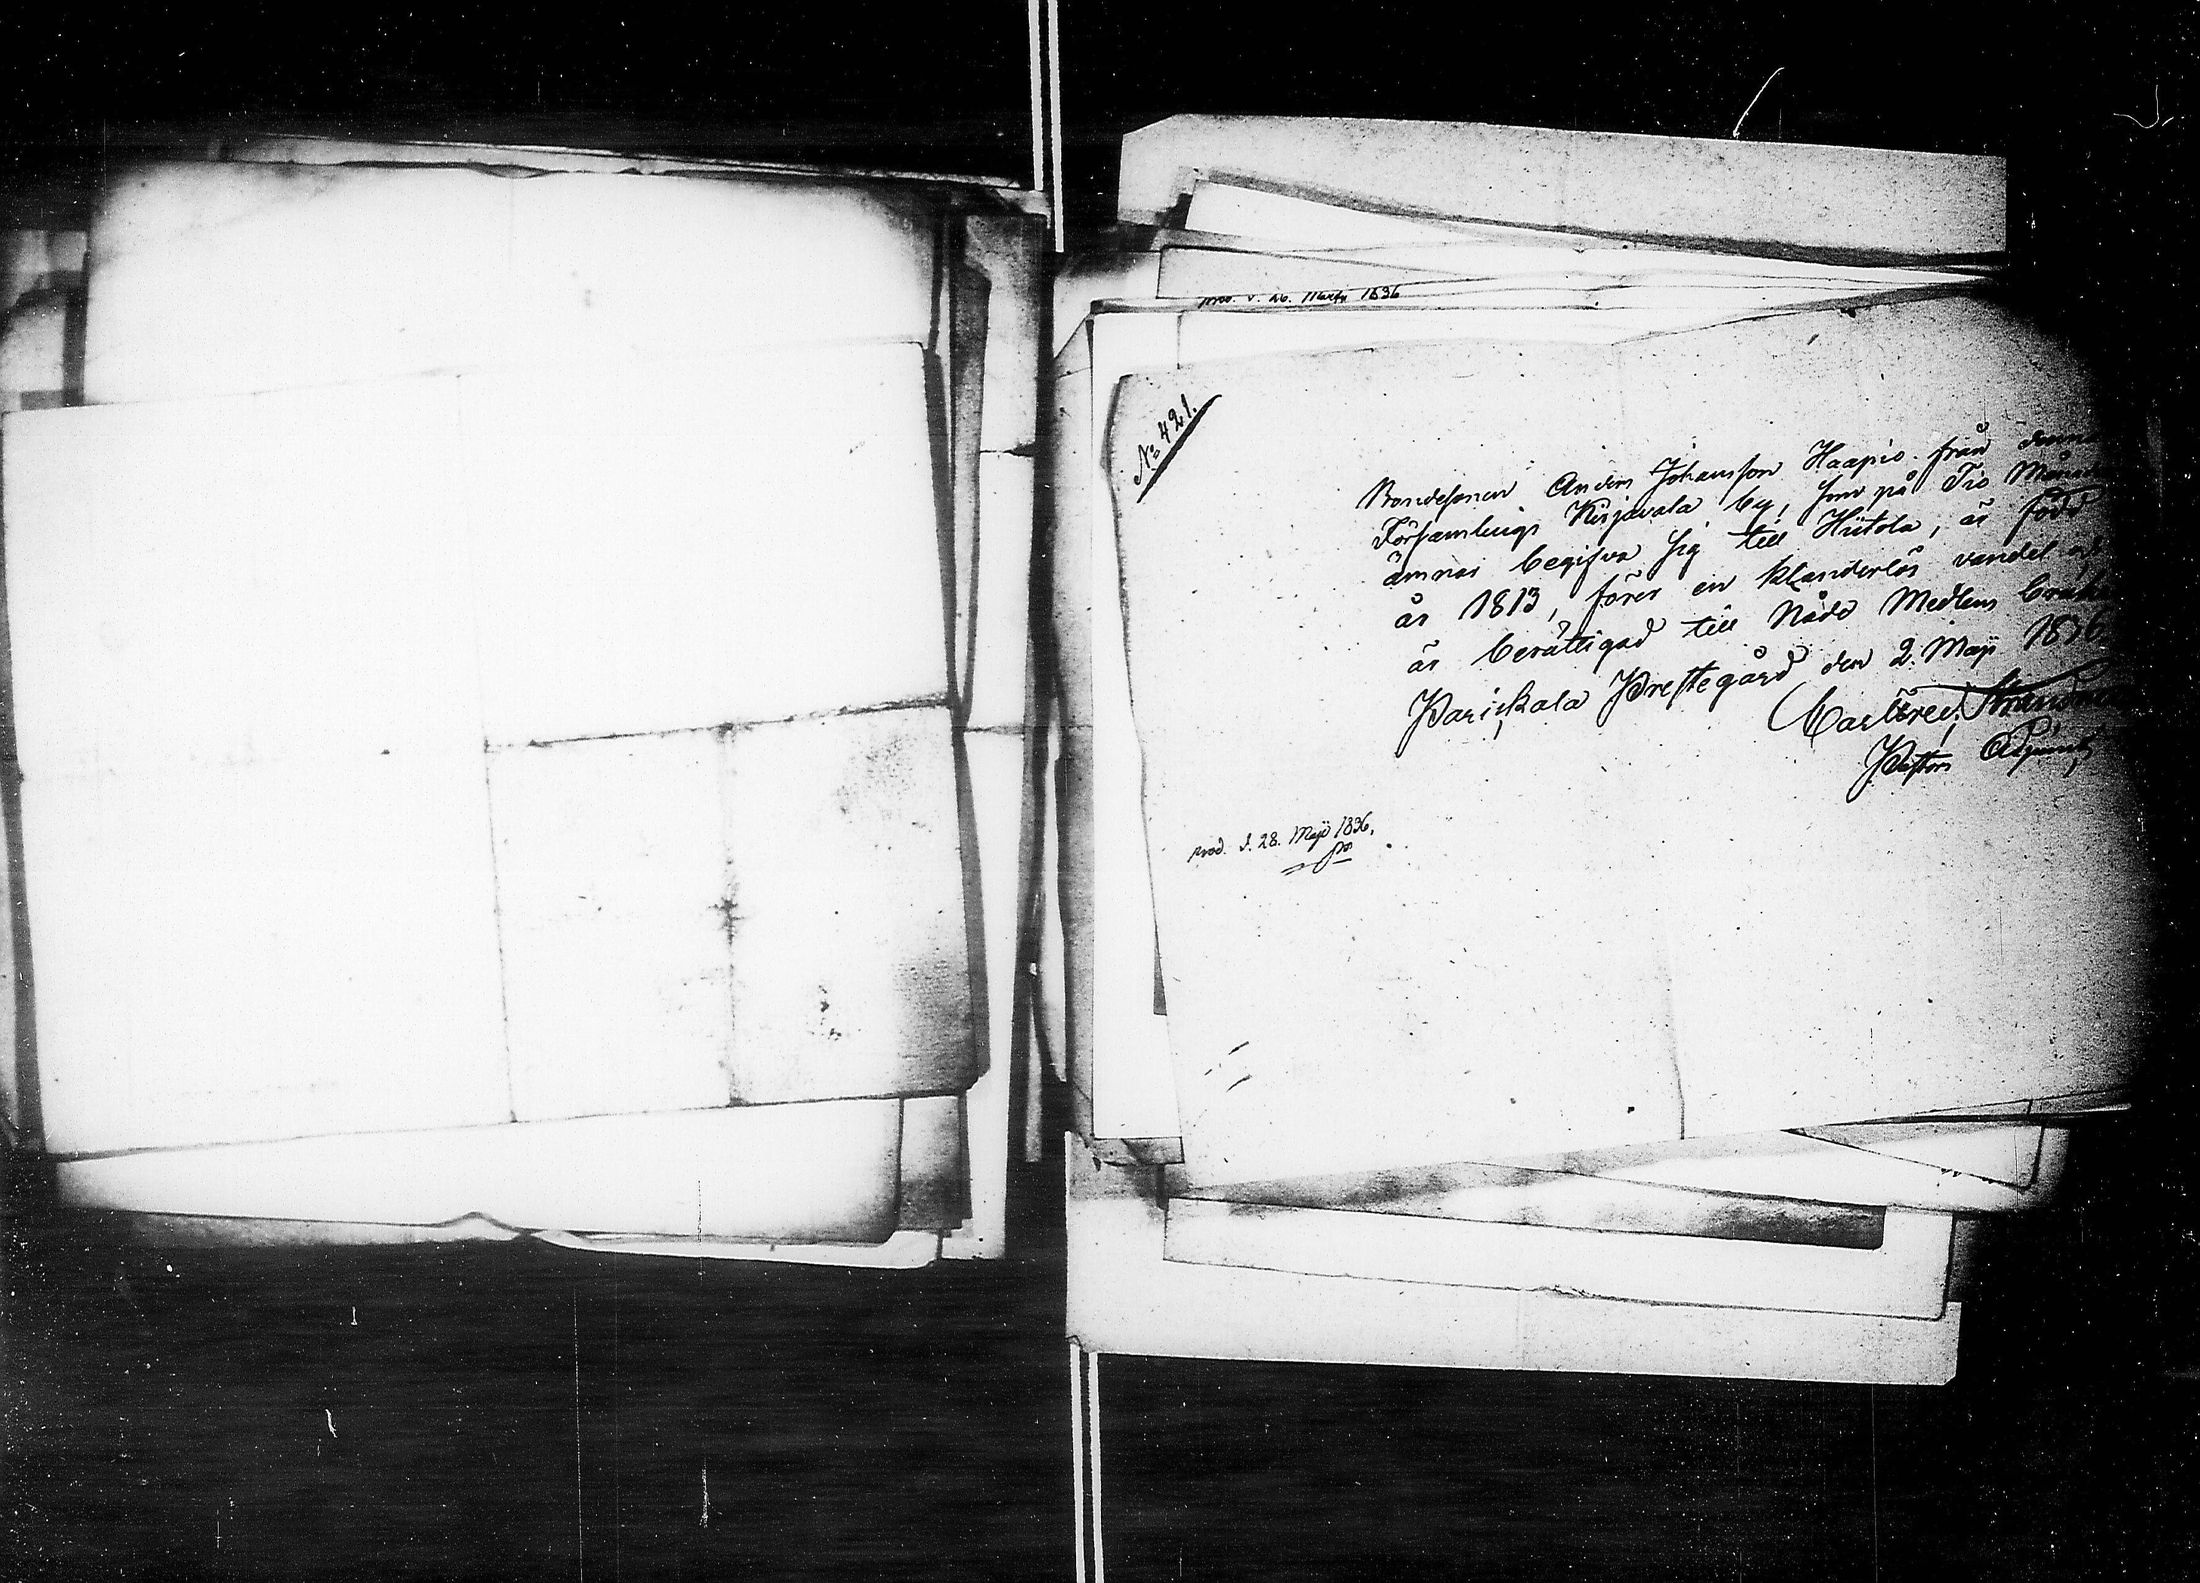 prod. d. 26. Martii 1836
No 421.
Bondesonen Anders Johansson Haapio från denna
Församlings Kirjavala by, som på Tio Månader
ämnar begifva sig till Hiitola, är född
år 1813, förer en klanderlös vandel, och
är berättigad till Nåde Medlens bruk.
Parikala Prestegård den 2. Maji 1836
Carl Fred.
Pastors Adjunct
prod. d. 28. Maji 1836.